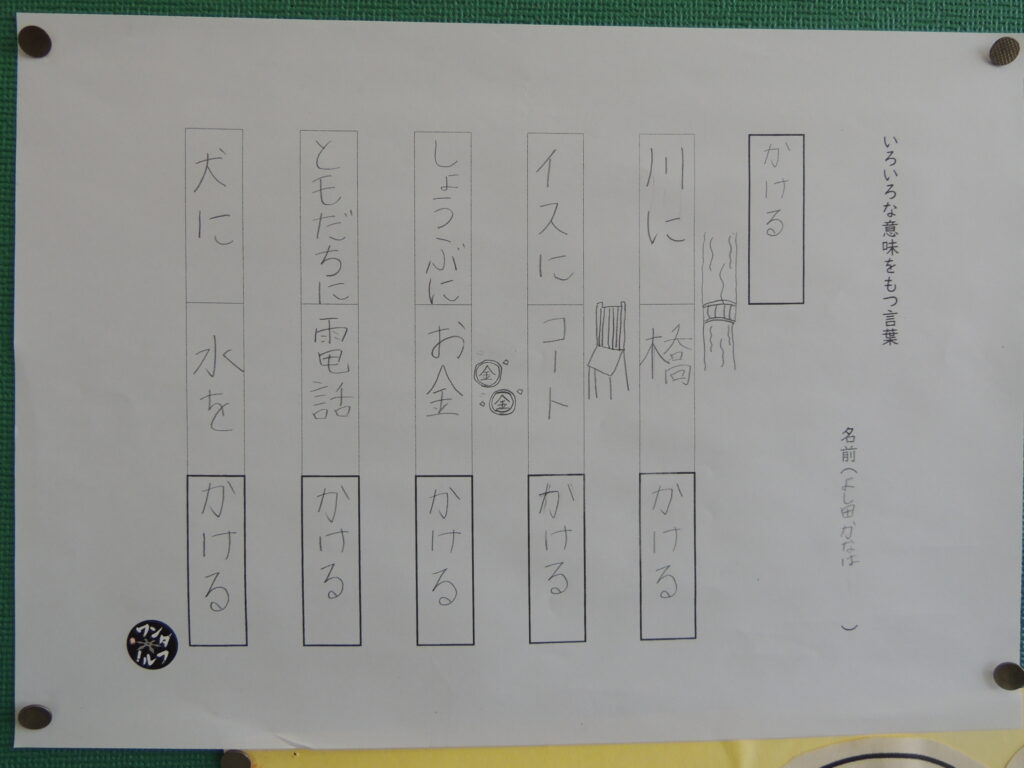 いろいろな意味をもつ言葉
名前（よし田かなは）
かける
川に橋かける
イスにコートかける
金
金
しょうぶにお金かける
ともだちに電話かける
犬に水をかける
ワンダフル